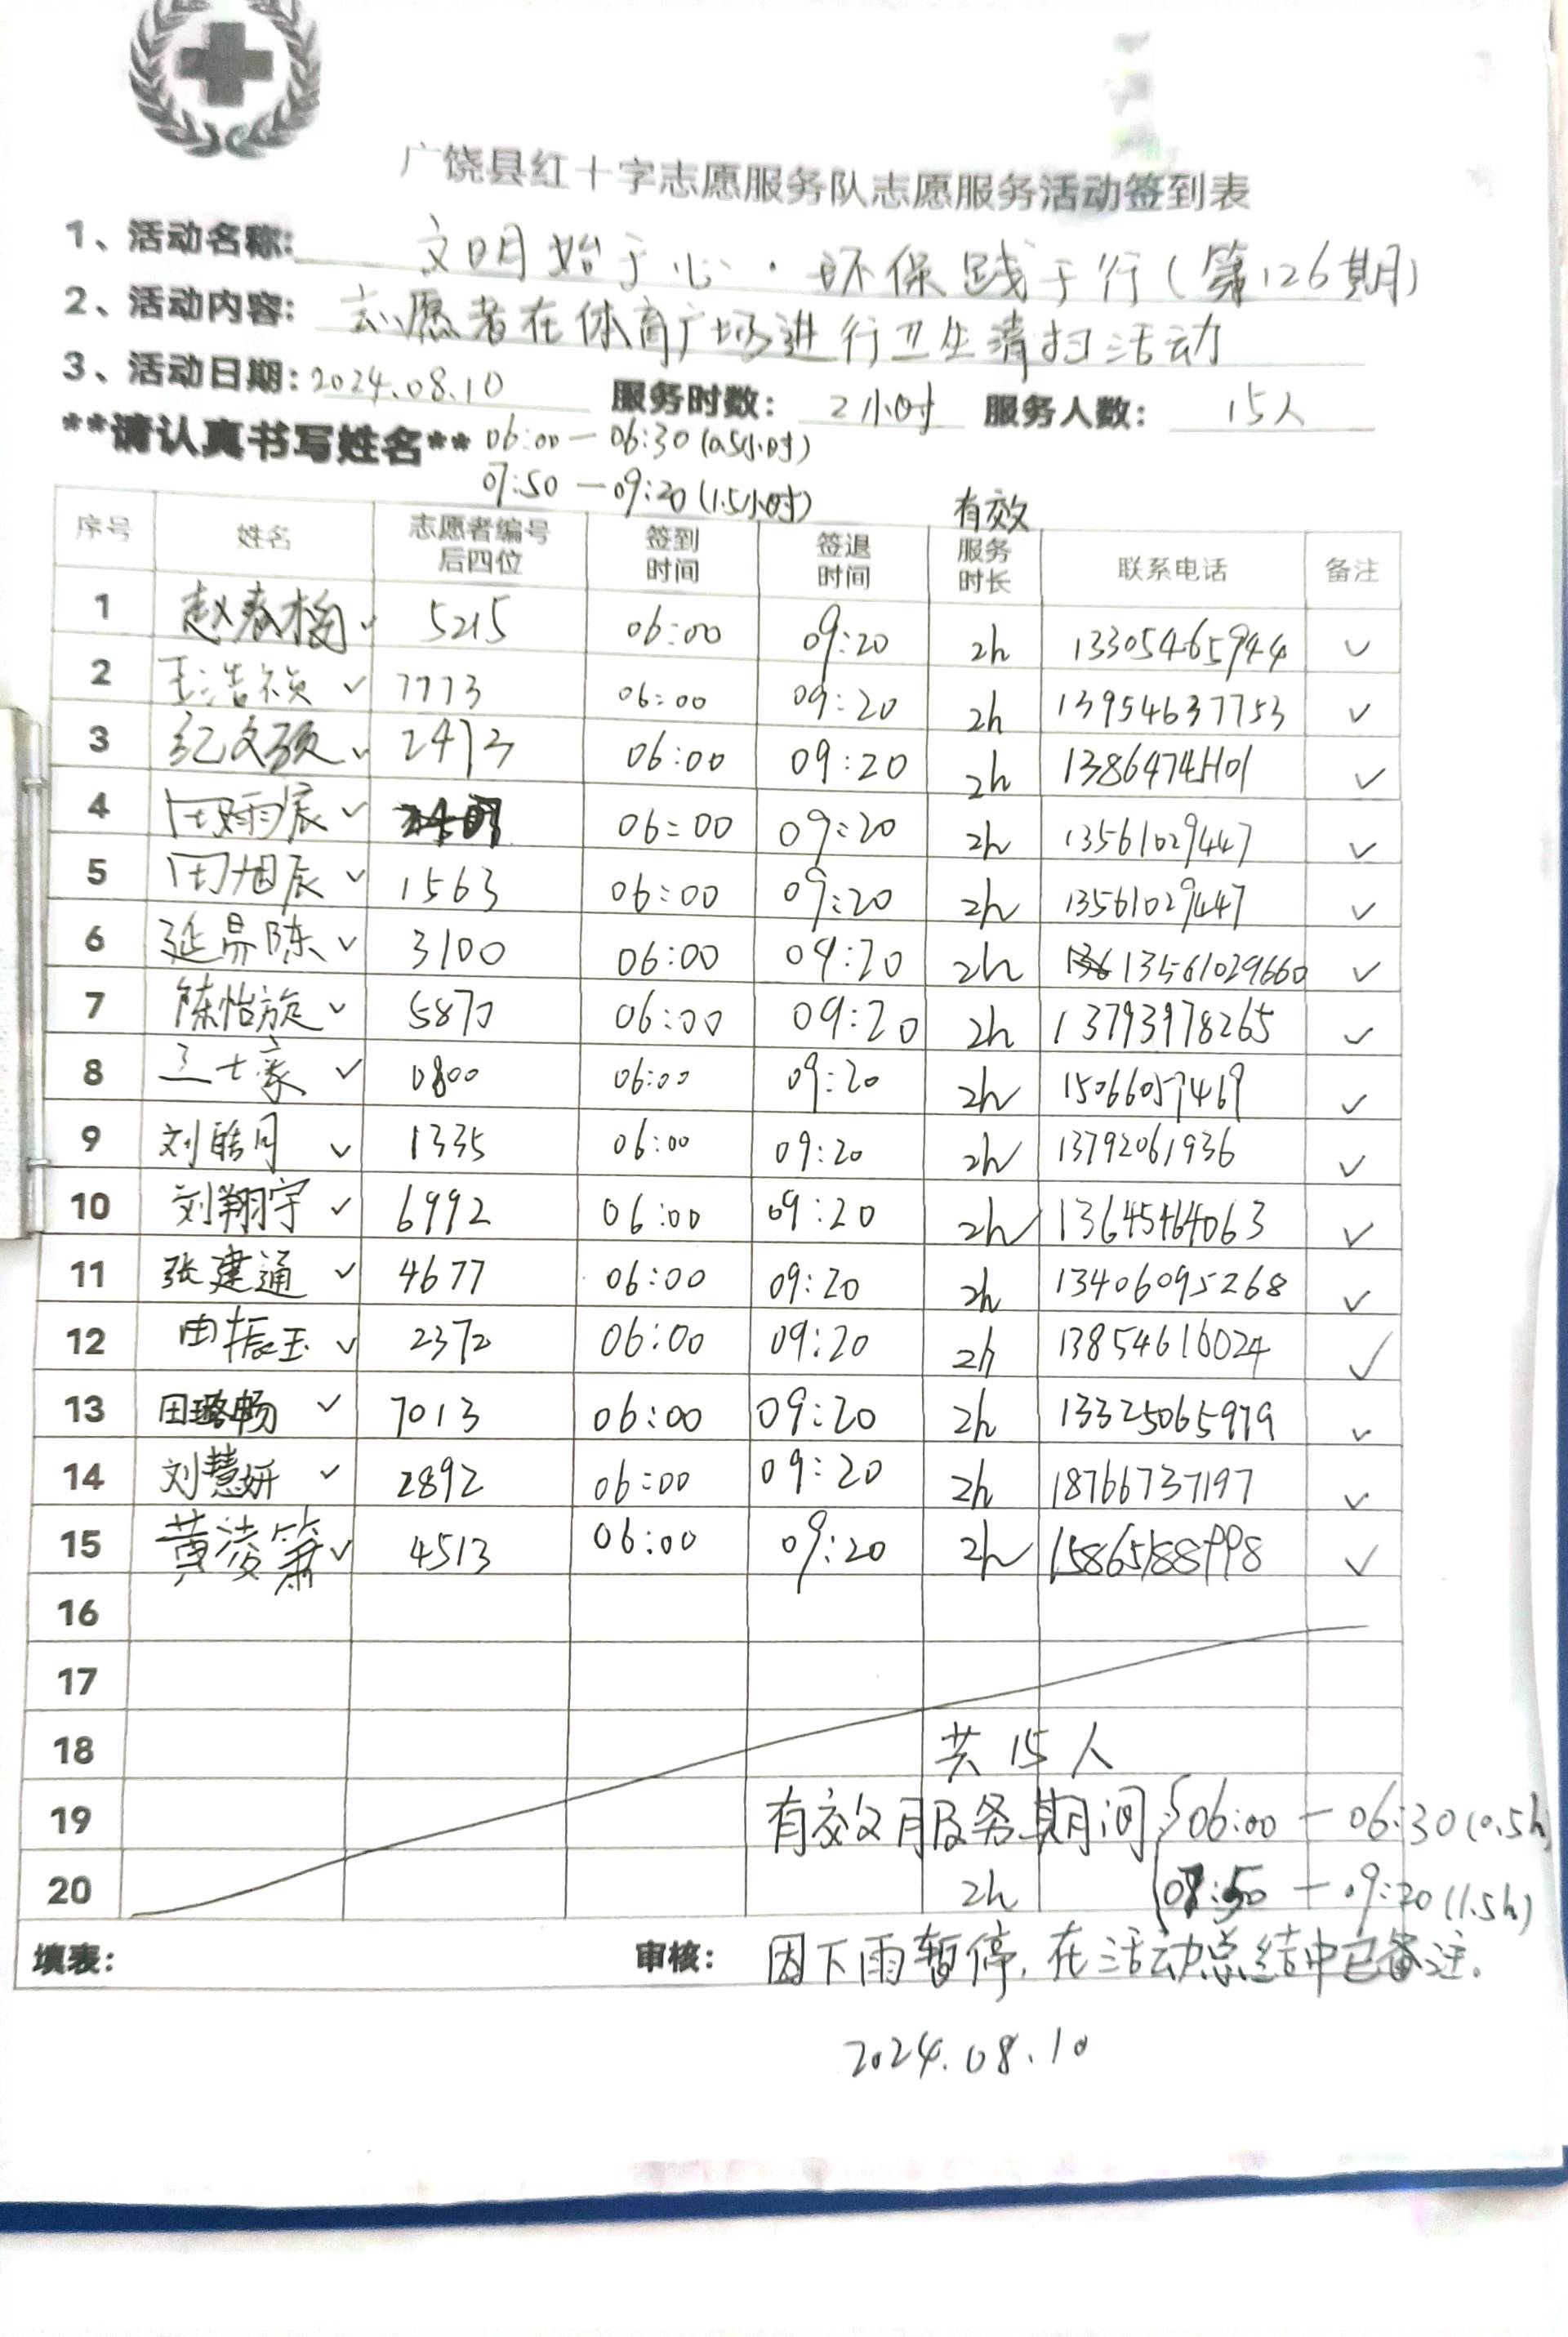 广饶县红十字志愿服务队志愿服务活动签到表
1、活动名称: 文明始于心·环保践于行(第126期)
2、活动内容: 志愿者在体育广场进行卫生清扫活动
3、活动日期: 2024.08.10 服务时数: 2小时 服务人数: 15人
**请认真书写姓名** 06:00—06:30(0.5小时)
07:50—09:20(1.5小时)
序号 姓名 志愿者编号后四位 签到时间 签退时间 有效服务时长 联系电话 备注
1 赵春梅 ✓ 5215 06:00 09:20 2h 13305465944 ✓
2 王浩祯 ✓ 7773 06:00 09:20 2h 13954637753 ✓
3 纪文硕 ✓ 2473 06:00 09:20 2h 13864741101 ✓
4 田雨辰 ✓ 06:00 09:20 2h 13561029447 ✓
5 田旭辰 ✓ 1563 06:00 09:20 2h 13561029447 ✓
6 延昇陈 ✓ 3100 06:00 09:20 2h 13561029660 ✓
7 陈怡旋 ✓ 5870 06:00 09:20 2h 13793978265 ✓
8 ✓ 0800 06:00 09:20 2h 15066057469 ✓
9 刘皓月 ✓ 1335 06:00 09:20 2h 13792061936 ✓
10 刘翔宇 ✓ 6992 06:00 09:20 2h 13645464063 ✓
11 张建通 ✓ 4677 06:00 09:20 2h 13406095268 ✓
12 由振玉 ✓ 2372 06:00 09:20 2h 13854616024 ✓
13 田璐畅 ✓ 7013 06:00 09:20 2h 13325065979 ✓
14 刘慧妍 ✓ 2892 06:00 09:20 2h 18766737197 ✓
15 黄凌箫 ✓ 4513 06:00 09:20 2h 15865188998 ✓
16
17
18 共15人
19 有效服务期间 06:00—06:30(0.5h)
20 2h 07:50—09:20(1.5h)
填表: 审核: 因下雨暂停,在活动总结中已备注。
2024.08.10